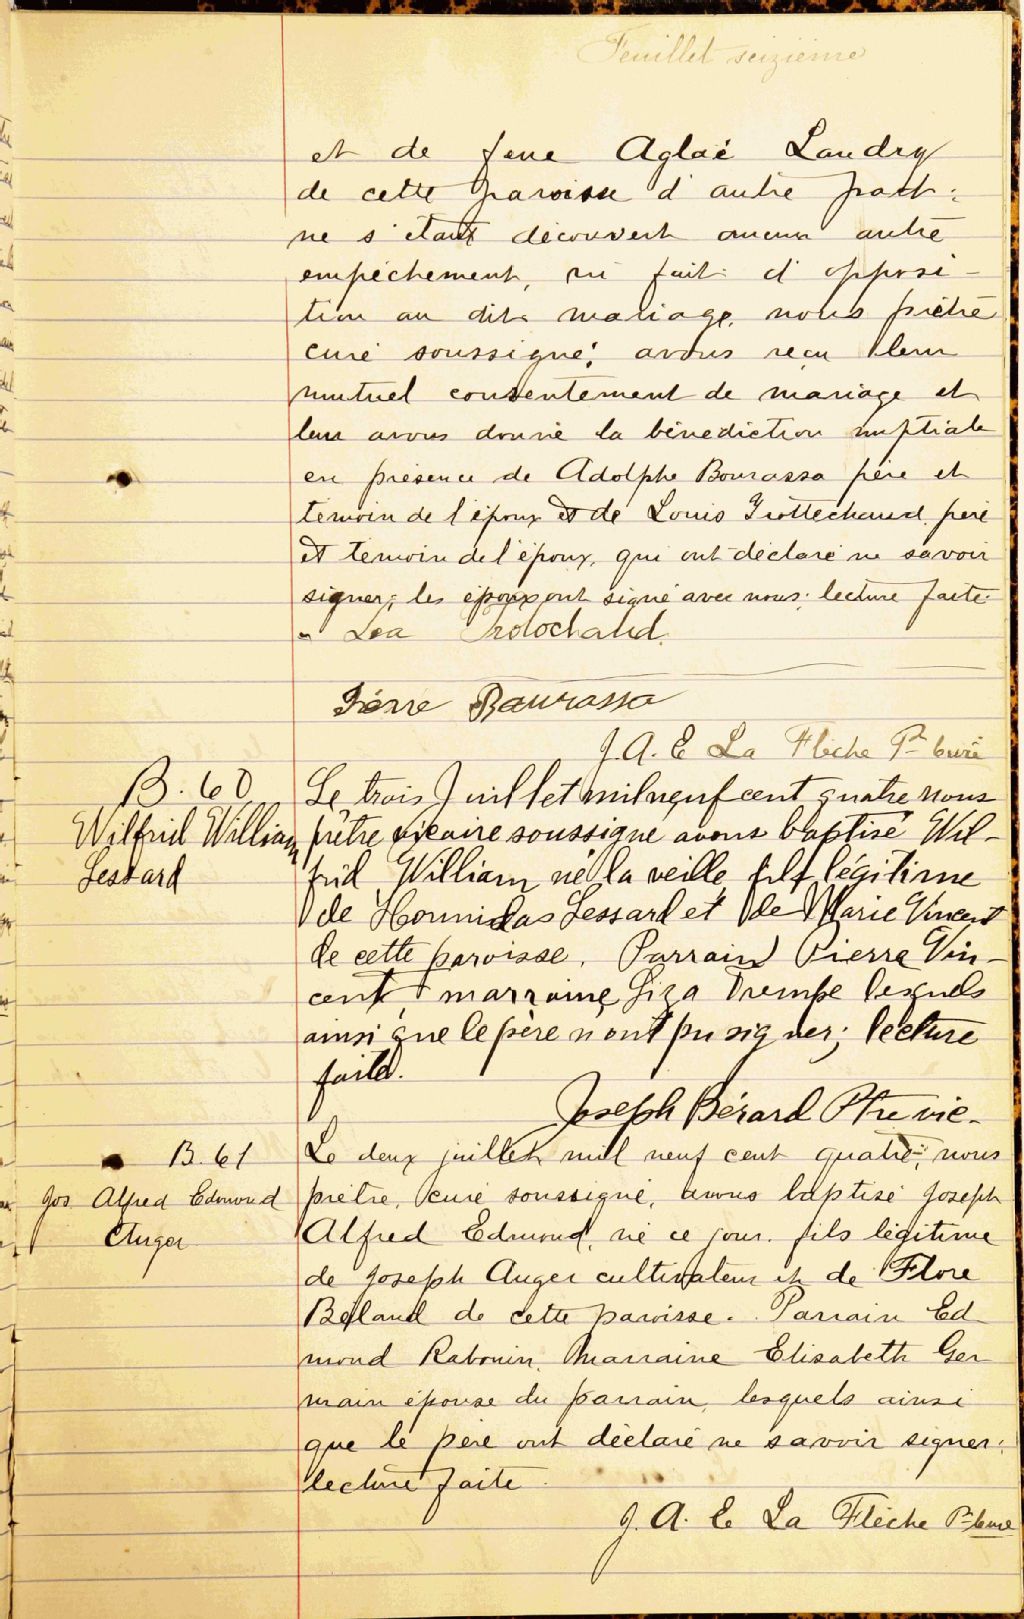 Feuillet seizième
et de feue Aglaé Landry
de cette paroisse d'autre part ;
ne s'étant découvert aucun autre
empêchement, ni fait d'opposi-
tion au dit mariage, nous prêtre
curé soussigné, avons reçu leur
mutuel consentement de mariage et
leur avons donné la bénédiction nuptiale
en présence de Adolphe Bourassa père et
témoin de l'époux et de Louis Trottechaud père
et témoin de l'époux, qui ont déclaré ne savoir
signer; les époux ont signé avec nous; lecture faite.
Léa Trotochaud
Pierre Baurassa
J. A. E La Flèche Ptr curé
B. 60
Wilfrid William
Lessard
Le trois Juillet mil neuf cent quatre nous
prêtre vicaire soussigné avons baptisé Wil-
frid William né la veille fils légitime
de Hormidas Lessard et de Marie Vincent
de cette paroisse. Parrain Pierre Vin-
cent, marraine Liza Trempe lesquels
ainsi que le père n'ont pu signer; lecture
faite.
Joseph Bérard Ptre vic.
B. 61
Jos Alfred Edmond
Auger
Le deux juillet mil neuf cent quatre, nous
prêtre, curé soussigné, avons baptisé Joseph
Alfred Edmond, né ce jour, fils légitime
de Joseph Auger cultivateur et de Flore
Beland de cette paroisse. Parrain Ed
mond Rabouin, Marraine Elisabeth Ger
main épouse du parrain, lesquels ainsi
que le père ont déclaré ne savoir signer;
lecture faite.
J. A. E La Flèche Ptr curé